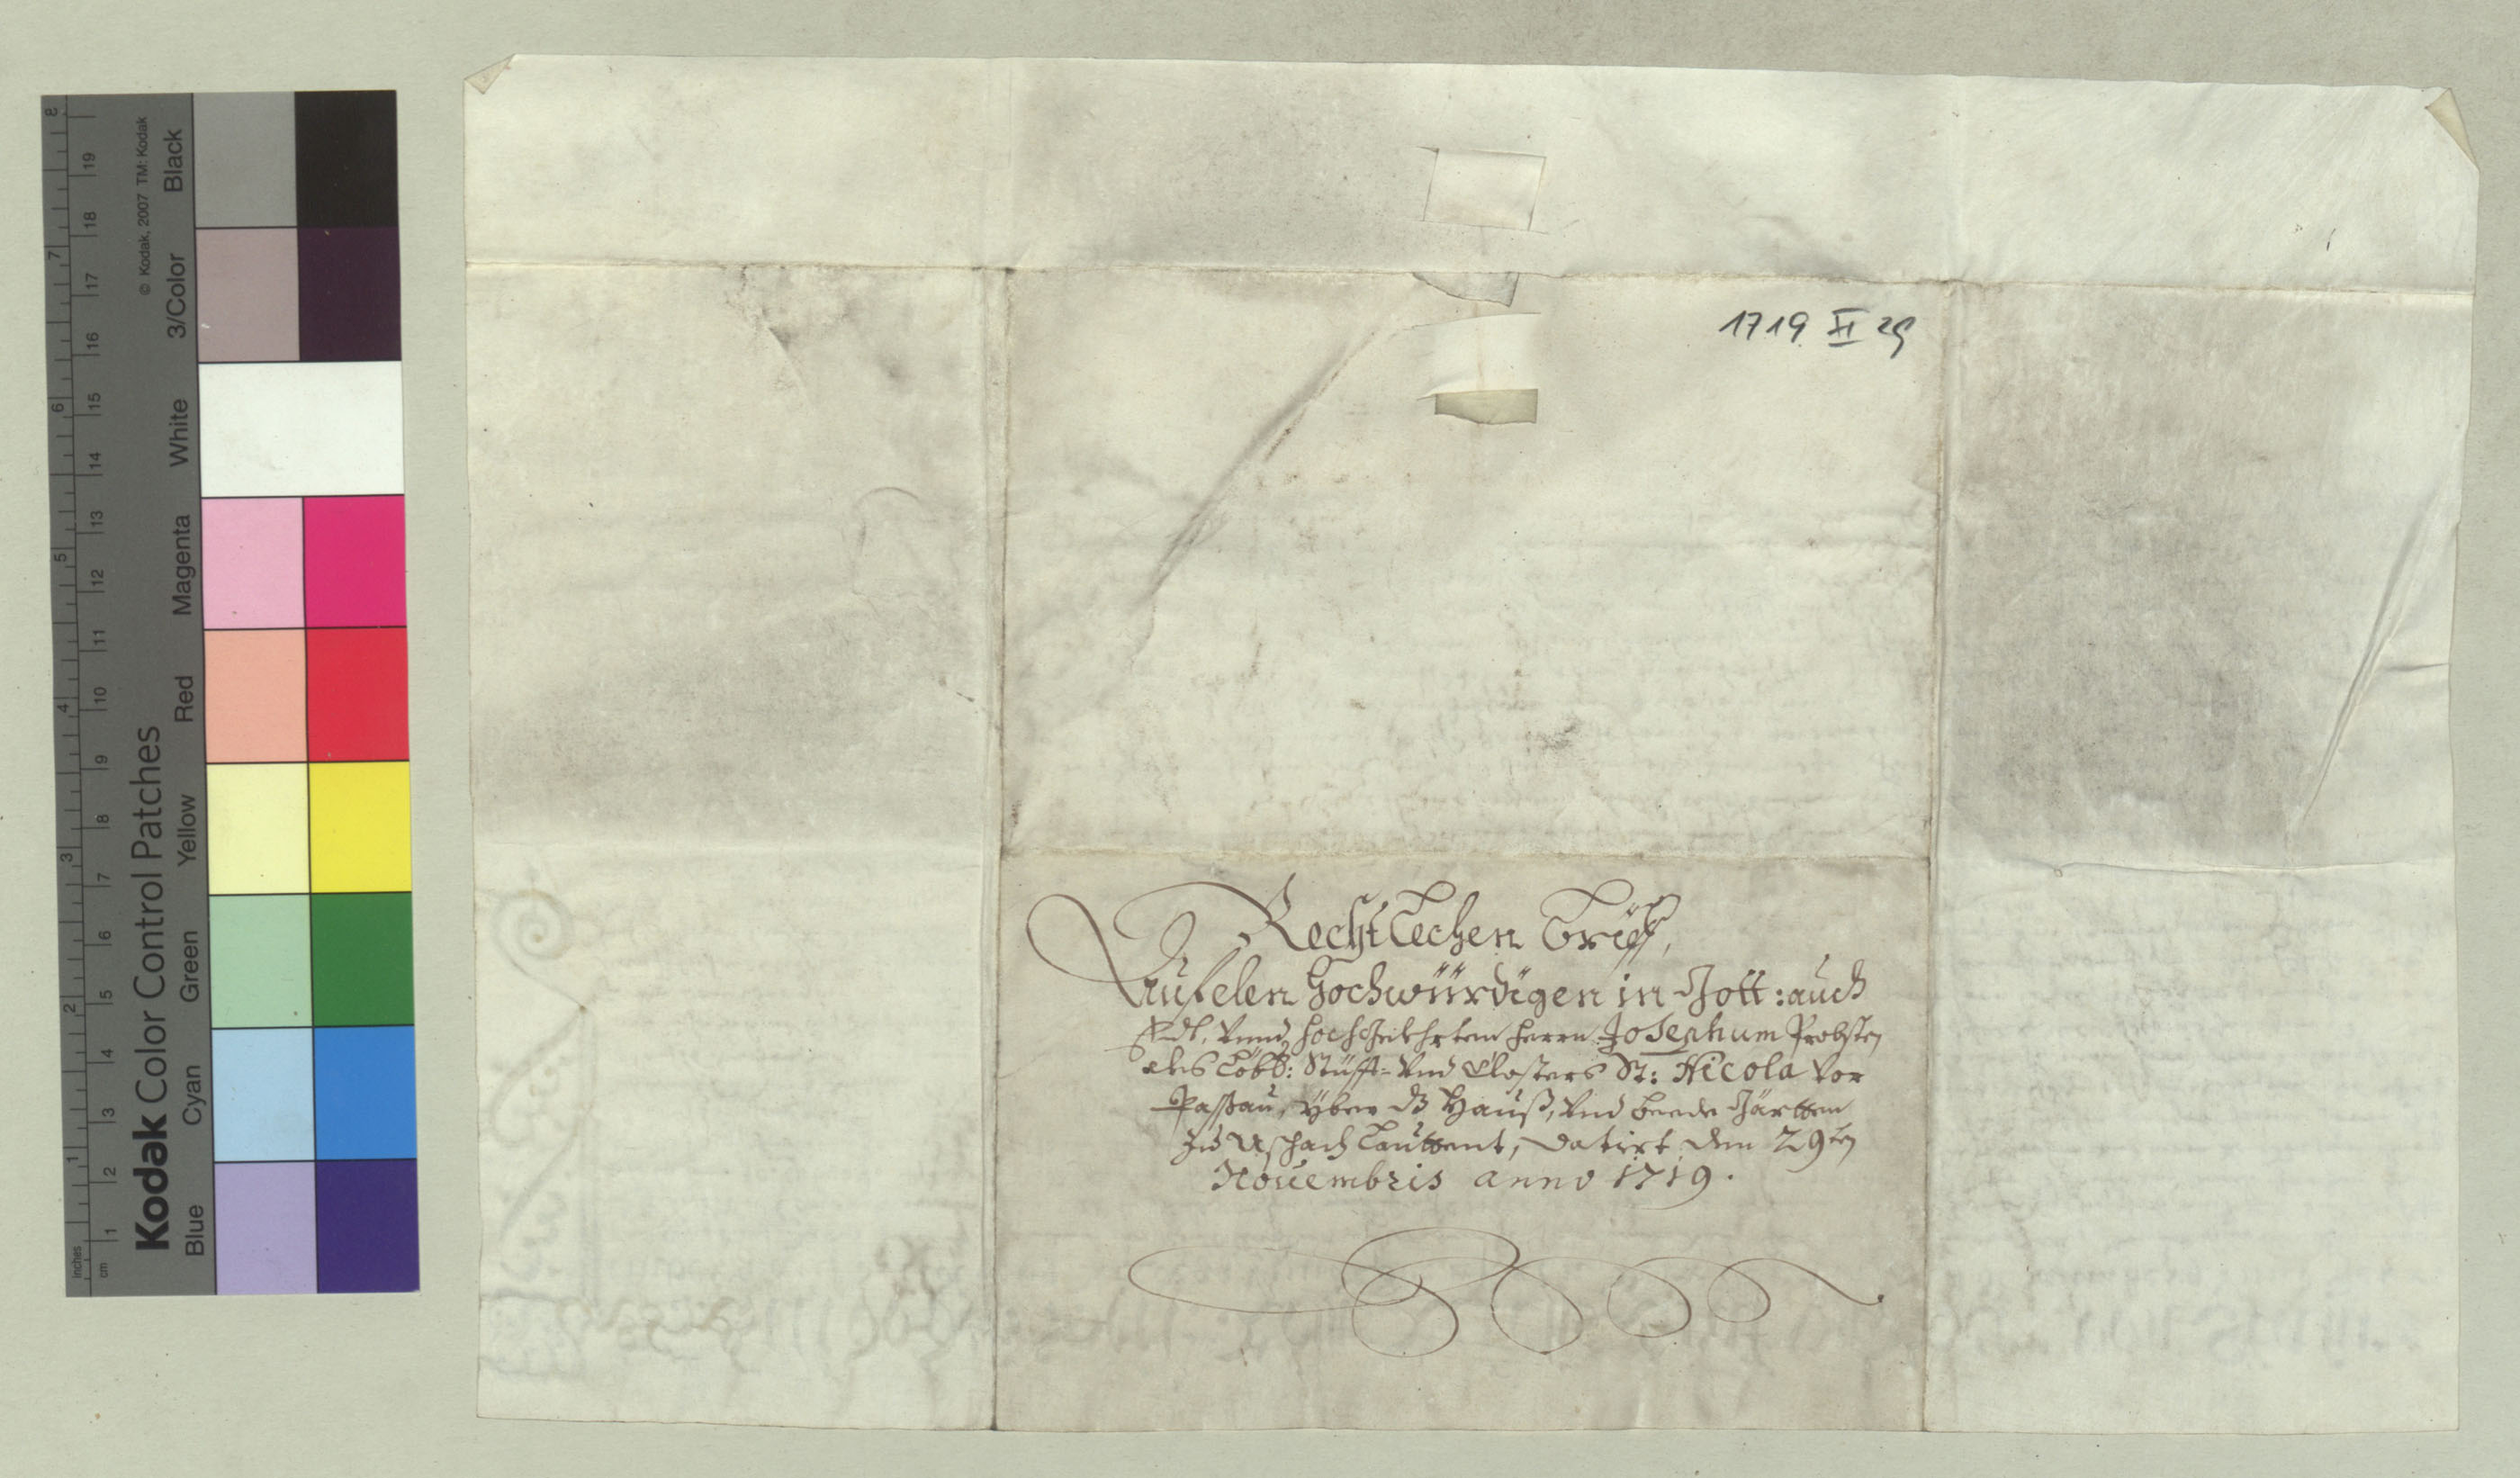 1719 XI 29
Recht Lechen Brieff,
Auf den Hochwürdigen in Gott: auch
Edl, Vnnd hochgelehrten Herrn Josephum Probsten
des Löbl: Stüfft- Vnd Closters St: Nicola Vor
Passau, yber dz Hauß, Vnd beede Gärtten
zu Aschach Lauttent, datirt den 29ten
Nouembris anno 1719.
Kodak Color Control Patches
© Kodak, 2007 TM: Kodak
Blue Cyan Green Yellow Red Magenta White 3/Color Black
inches 1 2 3 4 5 6 7 8
cm 1 2 3 4 5 6 7 8 9 10 11 12 13 14 15 16 17 18 19